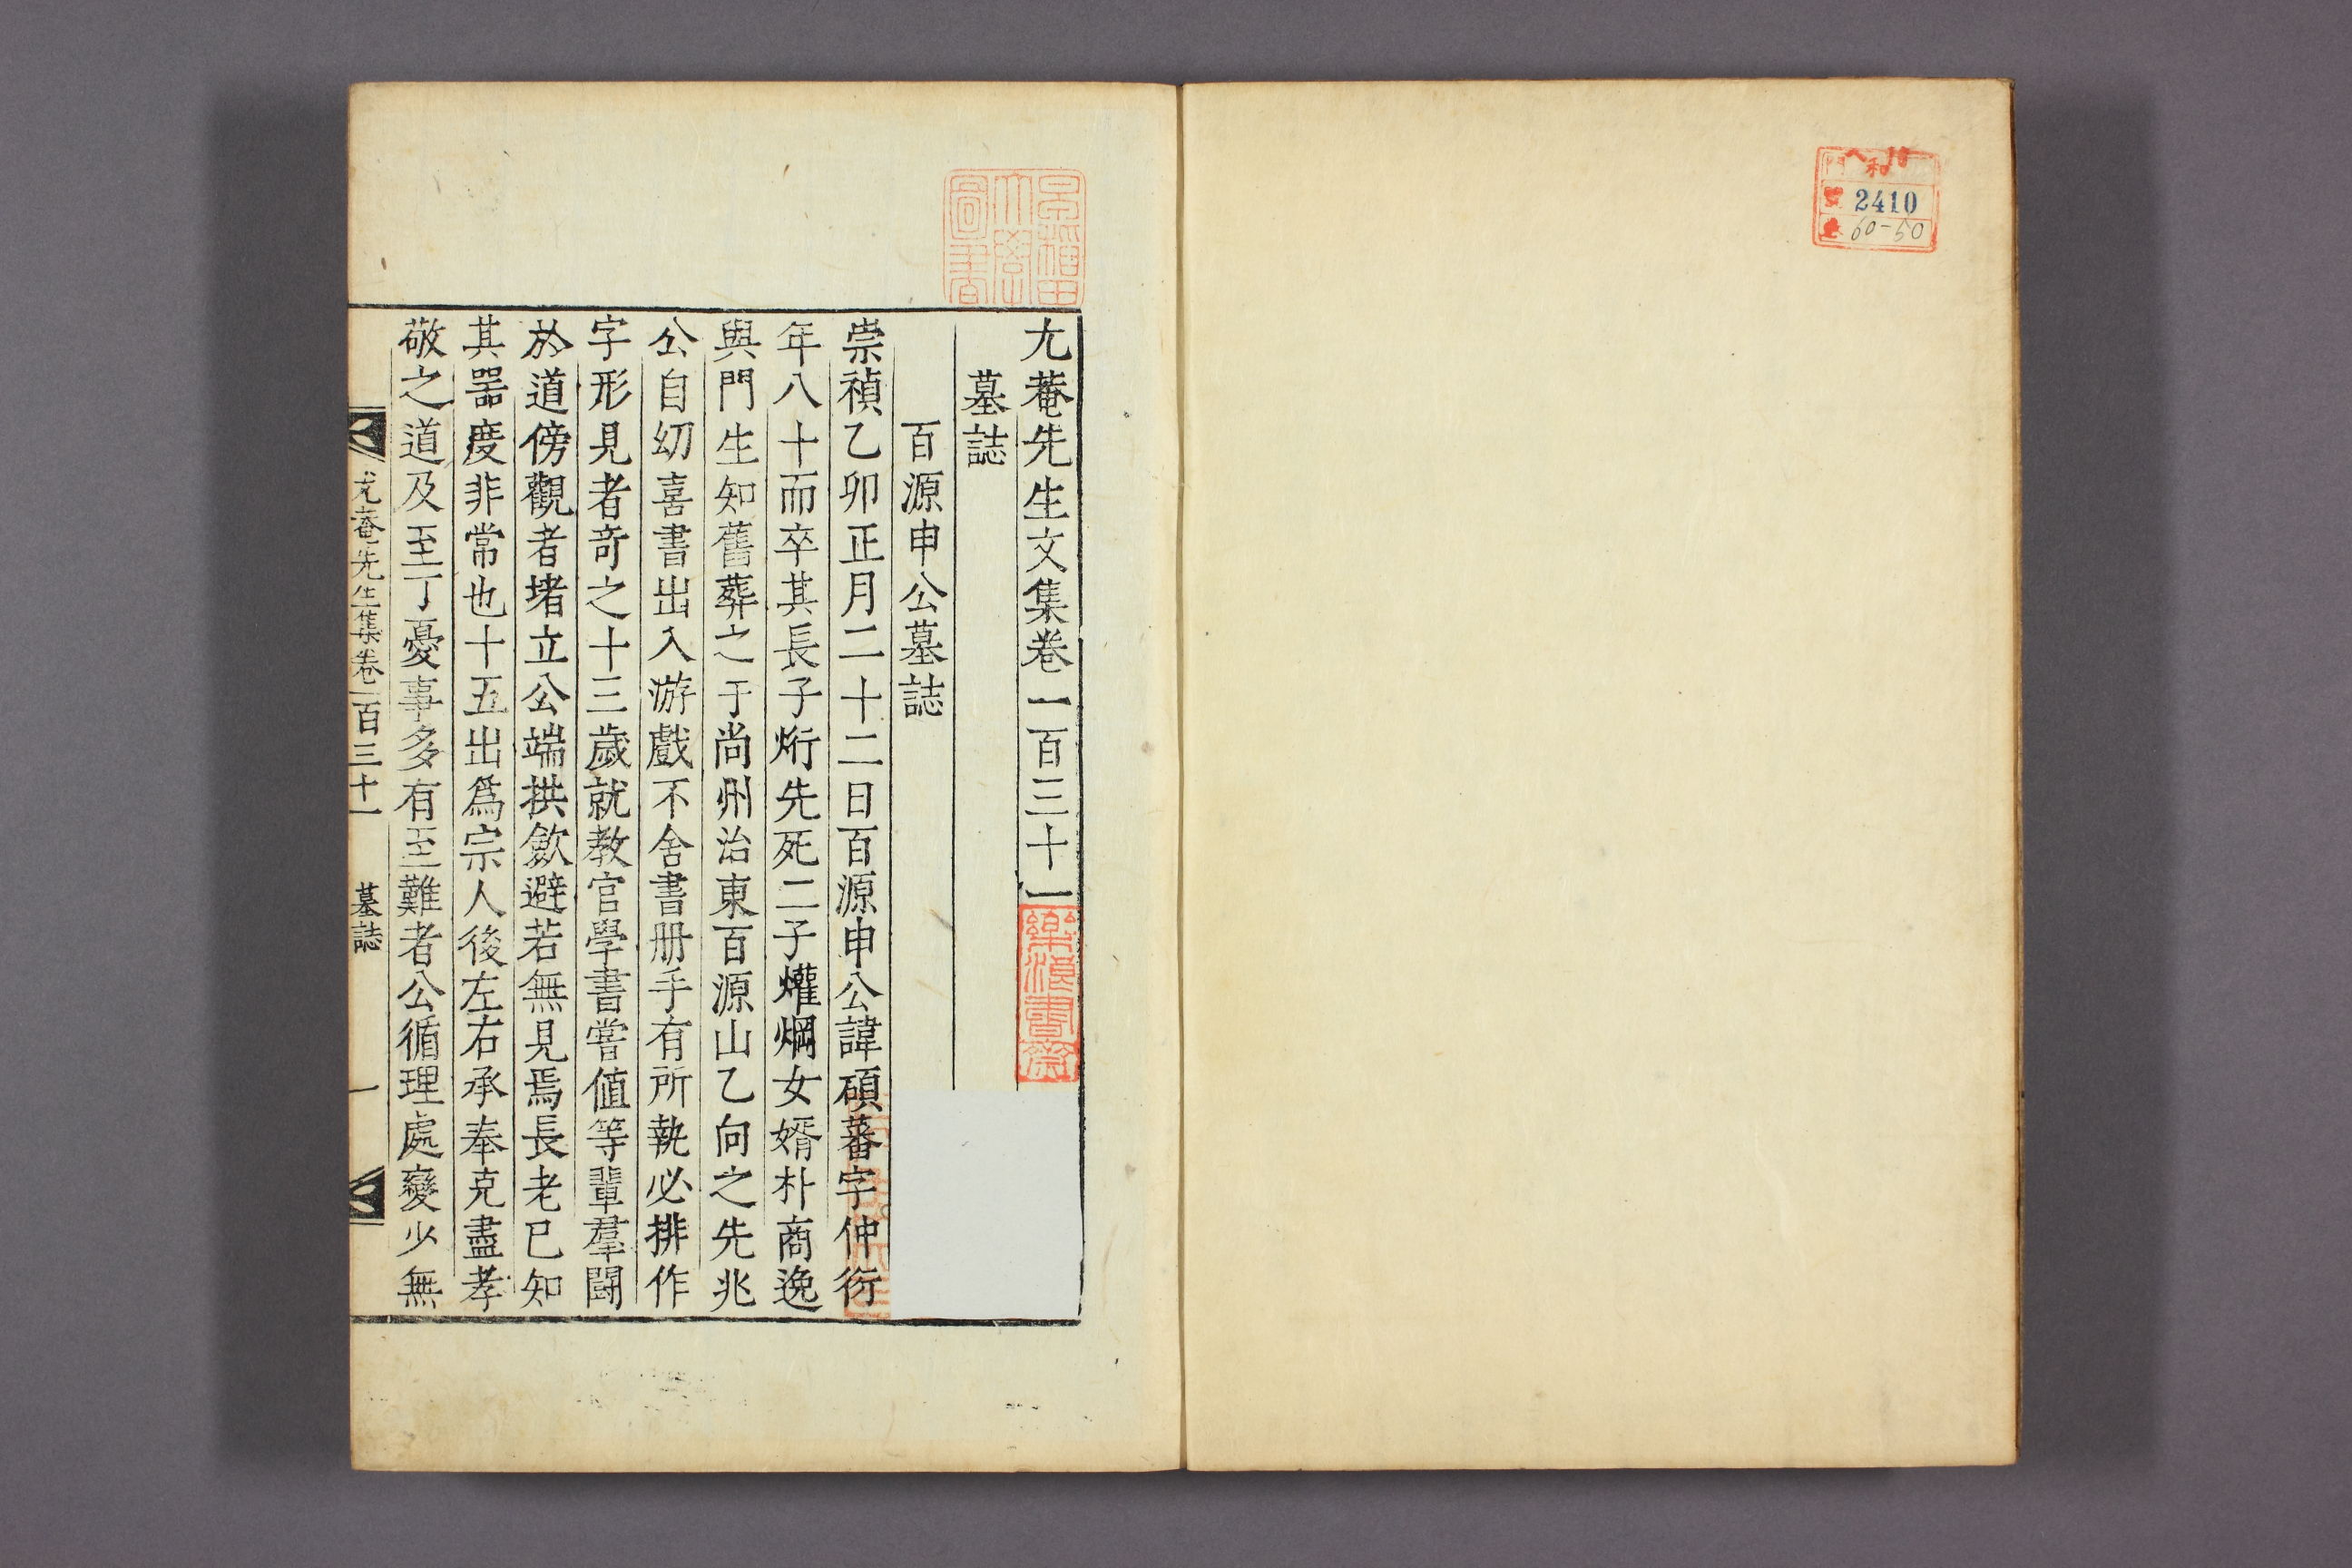 門 和
2410
60-50
早稲田
大學
圖書
尤菴先生文集卷一百三十一
樂浪書齋
墓誌
百源申公墓誌
崇禎乙卯正月二十二日百源申公諱碩蕃字仲衍
年八十而卒其長子烆先死二子爟焵女婿朴商逸
與門生知舊葬之于尚州治東百源山乙向之先兆
公自幼喜書出入游戲不舍書册手有所執必排作
字形見者奇之十三歲就教官學書嘗值等輩羣鬪
於道傍觀者堵立公端拱斂避若無見焉長老已知
其器度非常也十五出爲宗人後左右承奉克盡孝
敬之道及至丁憂事多有至難者公循理處變少無
尤菴先生集卷一百三十一 墓誌 一